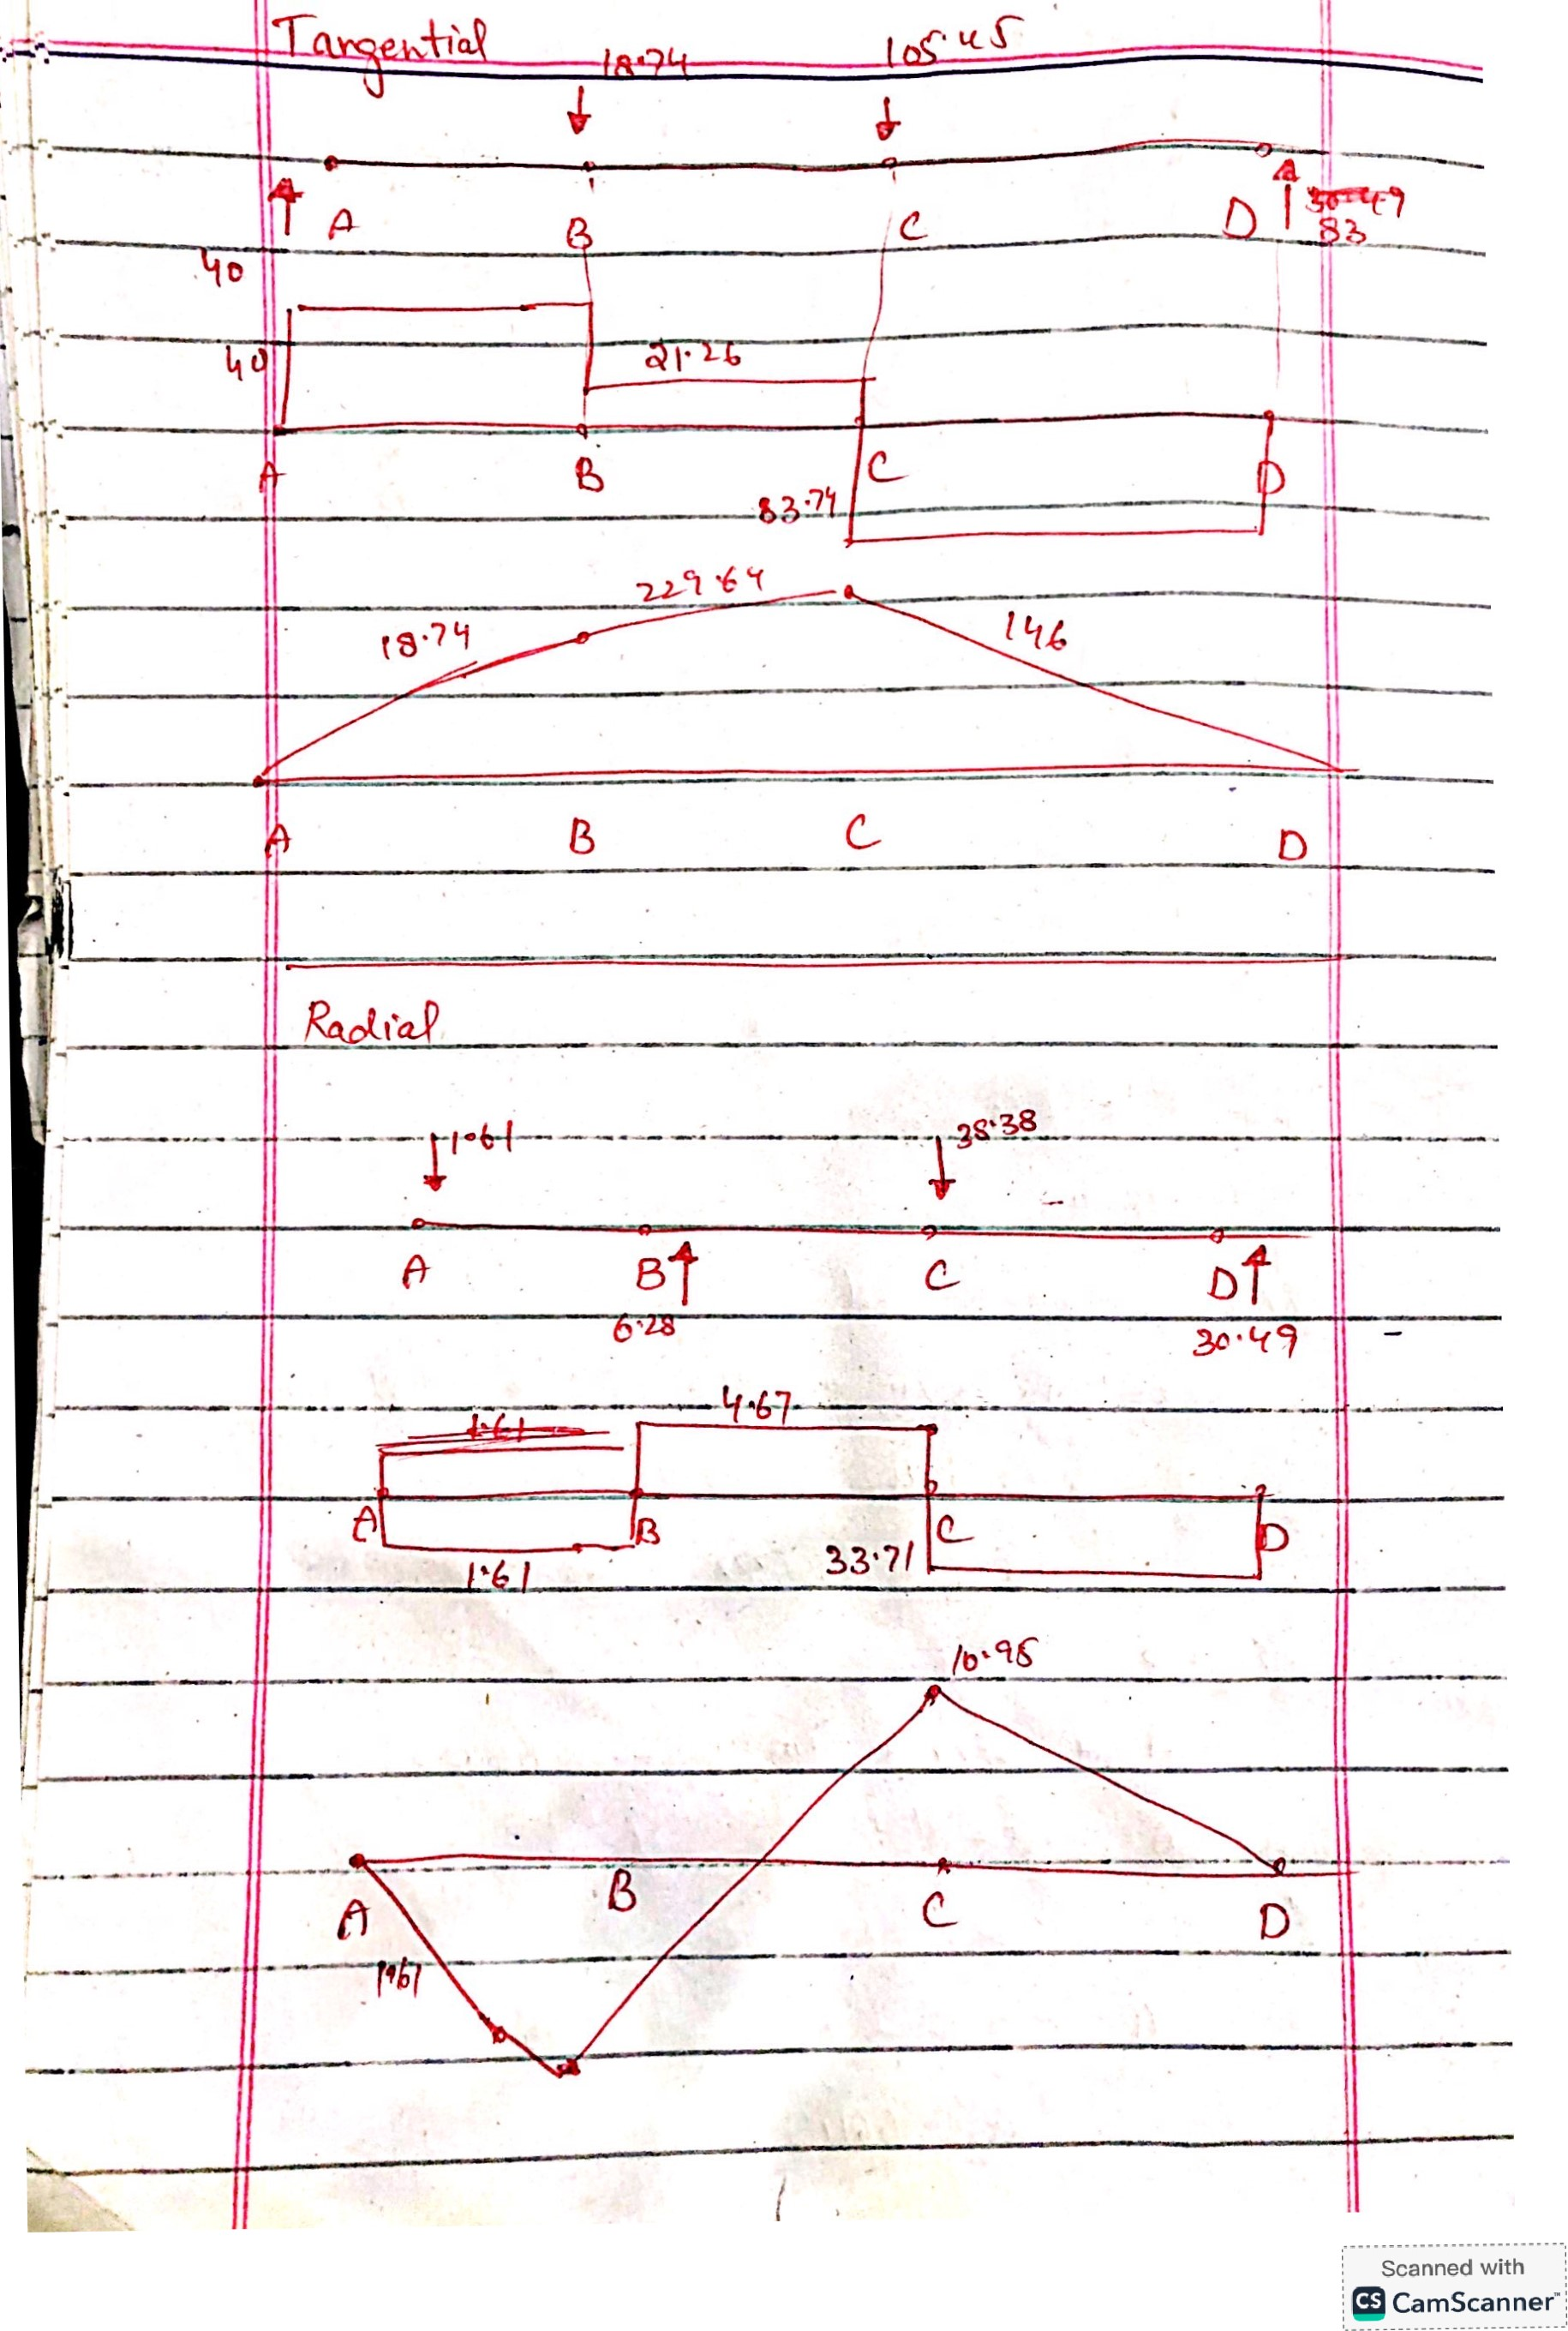 Tangential
18.74 105.45
A B C D 30.49
83
40
40 21.26
A B C D
83.74
18.74 229.64 146
A B C D
Radial
1.61 38.38
A B C D
6.28 30.49
1.61 4.67
A B C D
1.61 33.71
10.95
A B C D
1.61
Scanned with
CS CamScanner™